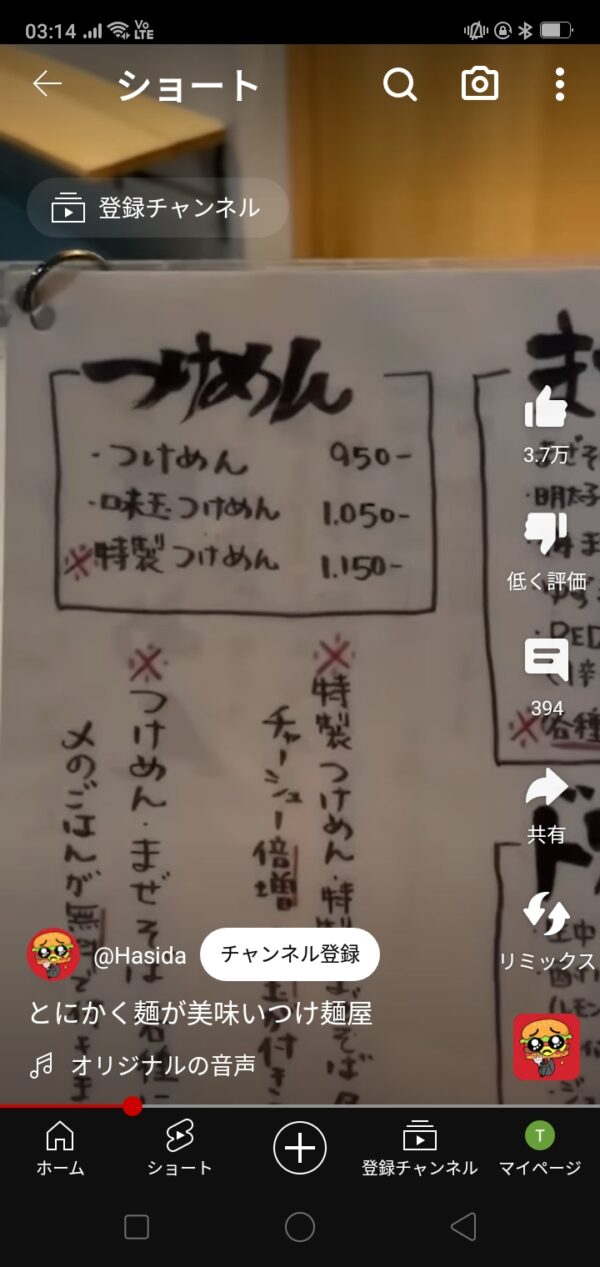 03:14
Vo
LTE
ショート
登録チャンネル
つけめん
・つけめん 950-
・味玉つけめん 1.050-
※特製つけめん 1.150-
ま
明太子
RED
※各種
※特製つけめん・特製
チャーシュー倍増
※つけめん・まぜそば
〆のごはんが無料で
3.7万
低く評価
394
共有
リミックス
@Hasida
チャンネル登録
とにかく麺が美味いつけ麺屋
オリジナルの音声
ホーム
ショート
登録チャンネル
T
マイページ